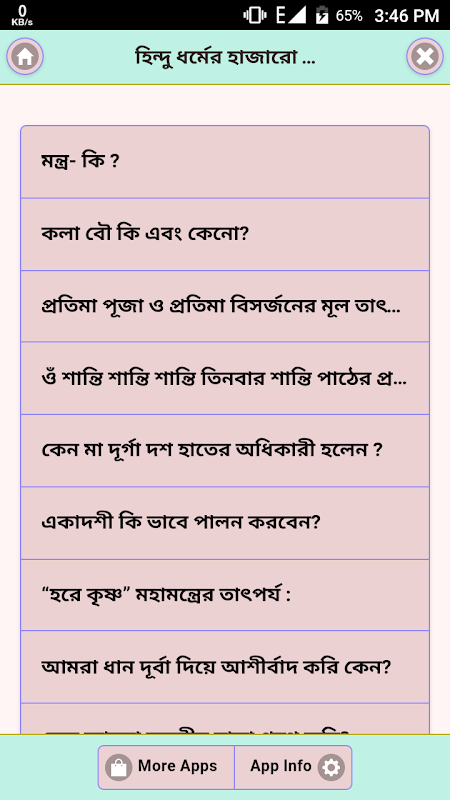 0
KB/s
E
65%
3:46 PM
হিন্দু ধর্মের হাজারো ...
মন্ত্র- কি ?
কলা বৌ কি এবং কেনো?
প্রতিমা পূজা ও প্রতিমা বিসর্জনের মূল তাৎ...
ওঁ শান্তি শান্তি শান্তি তিনবার শান্তি পাঠের প্র...
কেন মা দূর্গা দশ হাতের অধিকারী হলেন ?
একাদশী কি ভাবে পালন করবেন?
“হরে কৃষ্ণ” মহামন্ত্রের তাৎপর্য :
আমরা ধান দূর্বা দিয়ে আশীর্বাদ করি কেন?
More Apps
App Info